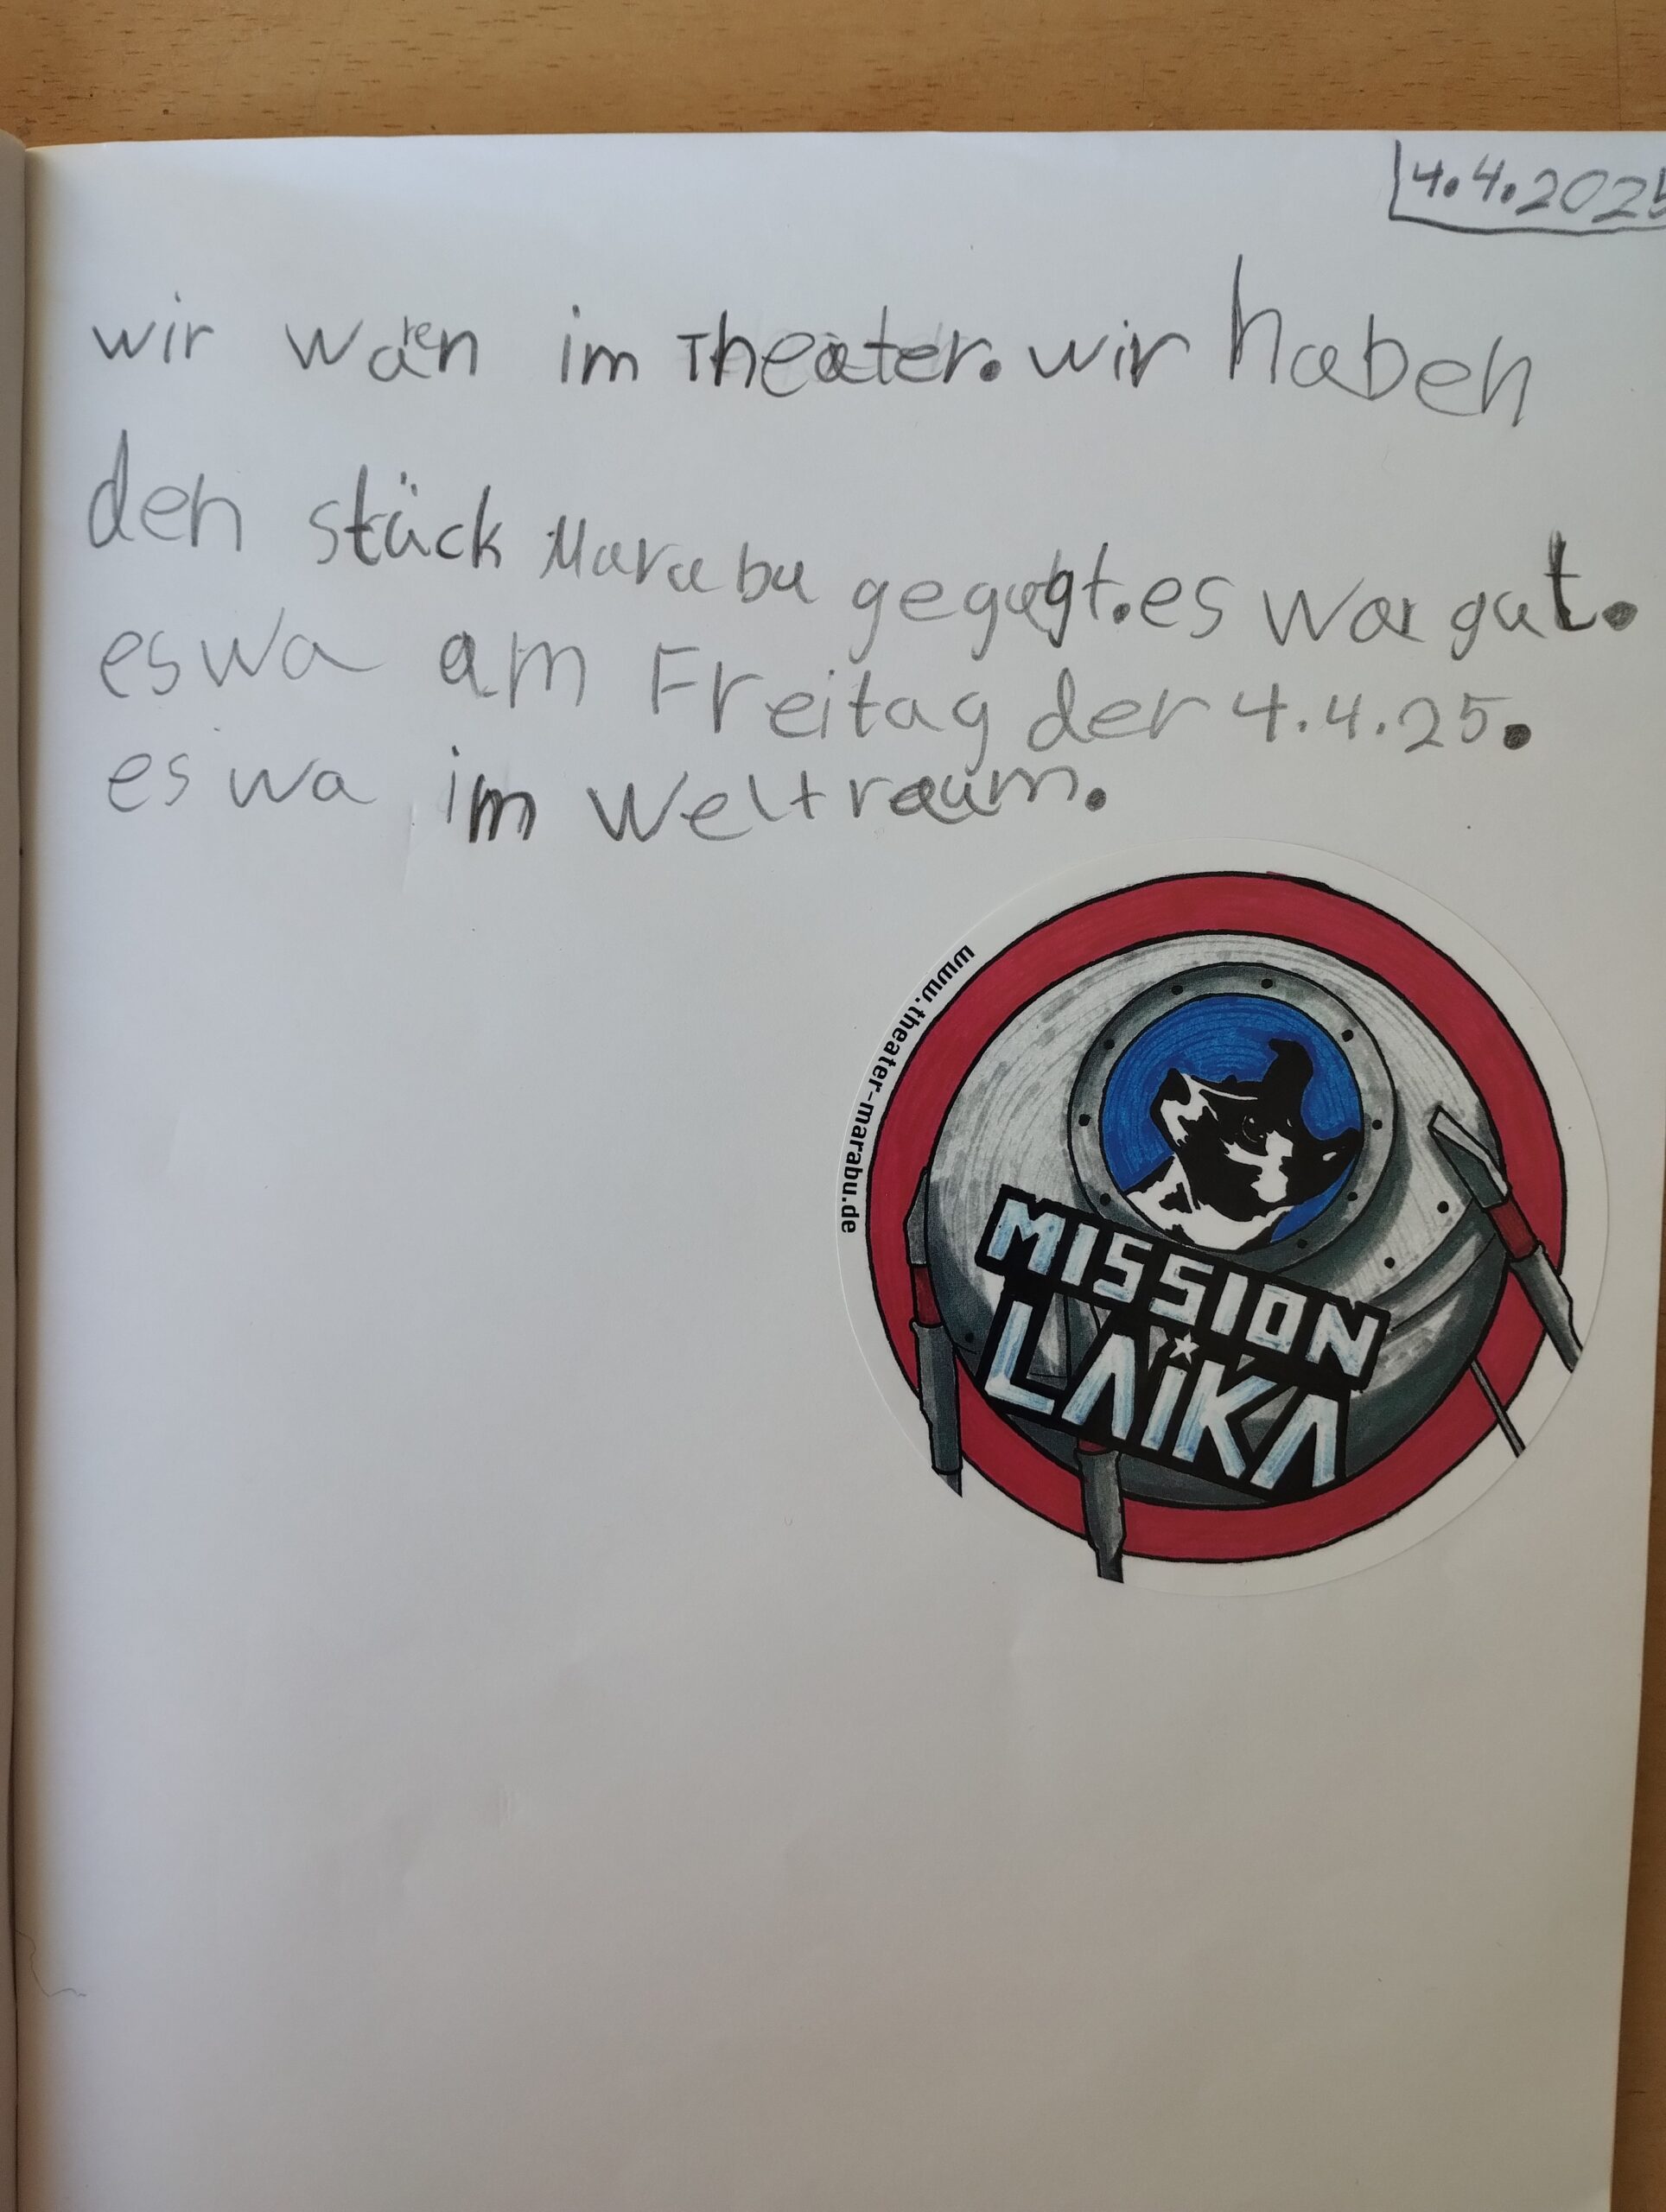 4.4.2025
wir waren im Theater. wir haben
den stück Marabu gegugt. es war gut.
es wa am Freitag der 4.4.25.
es wa im Weltraum.
www.theater-marabu.de
MISSION
LAiKA